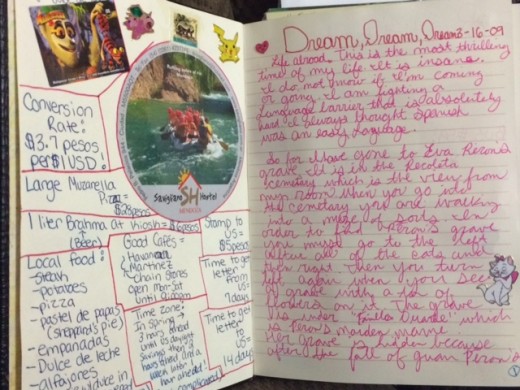 Conversion
Rate:
$3.7 pesos
per $1 USD!
Large Muzarella
Pizza =
$28 pesos
1 liter Brahma at Kiosk = 6 pesos
(Beer)
Local food:
-steak
-potatoes
-pizza
-pastel de papas
(shepard's pie)
-empanadas
-Dulce de leche
-alfajores
Good Cafés =
Havana
Martinez
Chain
open Mon-Sat
until
Time Zone:
In Spring
3 hours ahead
until US daylight
Savings then
hours ahead and
when later
hour ahead!
complicated
Stamp to
US =
$5 pesos
Time to get
letter
from
US =
9 days
Time to get
letter
to
US =
14 days
SH
Hostel
MENDOZA
Dream, Dream, Dream 3-16-09
Life abroad. This is the most thrilling
time of my life. It is insane.
I do not know if I'm coming
or going. I am fighting a
language barrier that is absolutely
hard. I always thought Spanish
was an easy language.
So far I have gone to Eva Peron's
grave. It is in the Recoleta
Cemetery which is the view from
my room. When you go into
the cemetery you are walking
into a maze of sorts. In
order to find Peron's grave
you must go to the left
after all of the cats and
then right. Then you turn
left again when you see
a grave with a pair of
on it. The grave
is under "Familia Duarte" which
is Peron's maiden name.
Her grave is hidden because
after the fall of Juan Peron's
1